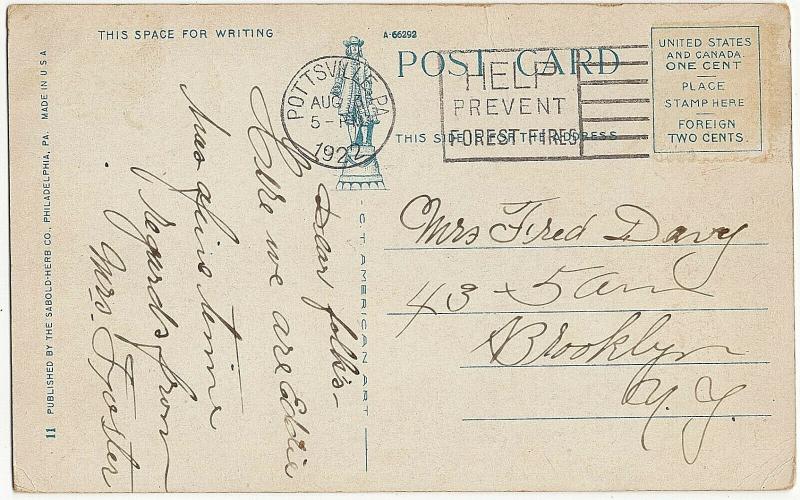 THIS SPACE FOR WRITING
A-66292
POST CARD
THIS SIDE IS FOR THE ADDRESS
UNITED STATES
AND CANADA
ONE CENT
PLACE
STAMP HERE
FOREIGN
TWO CENTS.
POTTSVILLE, PA
AUG
5-PM
1922
HELP
PREVENT
FOREST FIRES
Mrs Fred Davy
43-5 ave
Brooklyn
N. Y.
Dear folks-
Here we are Eddie
has a fine time
regards from
Mrs. Foster
C.T. AMERICAN ART
11 PUBLISHED BY THE SABOLD-HERB CO., PHILADELPHIA, PA. MADE IN U S A